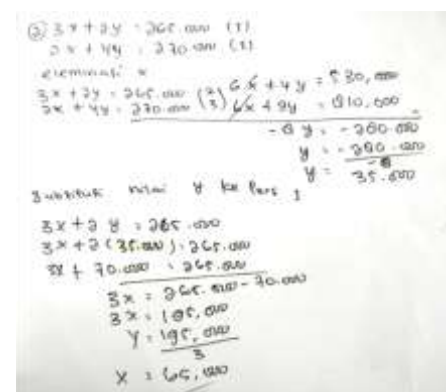 ② 3x + 2y = 265.000 (1)
2x + 4y = 270.000 (2)
eleminasi x
3x + 2y = 265.000 (2) 6x + 4y = 530,000
2x + 4y = 270.000 (3) 6x + 9y = 810.000
- 8 y = - 280.000
y = - 280.000
-8
y = 35.000
Substitusi nilai y ke Pers 1
3x + 2 y = 265.000
3x + 2 (35.000) = 265.000
3x + 70.000 = 265.000
3x = 265.000 - 70.000
3x = 195.000
Y = 195,000
3
X = 65,000